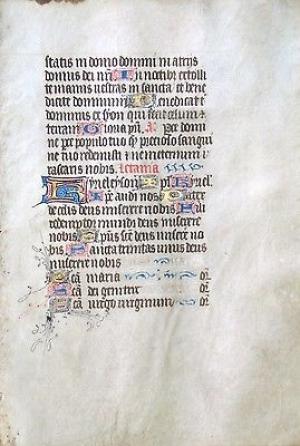 statis in domo domini in atrijs
domus dei nr̃i In noctibz extolli
te manus vestras in sancta et bene
dicite dominum Benedicat te
dominus ex syon qui fecit celum et
terram Gloria pr̃i. A. Parce domi
ne parce populo tuo quem precioso sangui
ne tuo redemisti ne in eternum i
rascaris nobis. Letania
Kyrieleyson Xp̃el. kyriel.
xp̃e audi nos Pater
de celis deus miserere nobis Fili
redemptor mundi deus miserere
nobis Sp̃us sc̃e deus miserere no
bis Sancta trinitas unus deus
miserere nobis
Sc̃a maria or̃
Sc̃a dei genitrix or̃
Sc̃a virgo virginum or̃